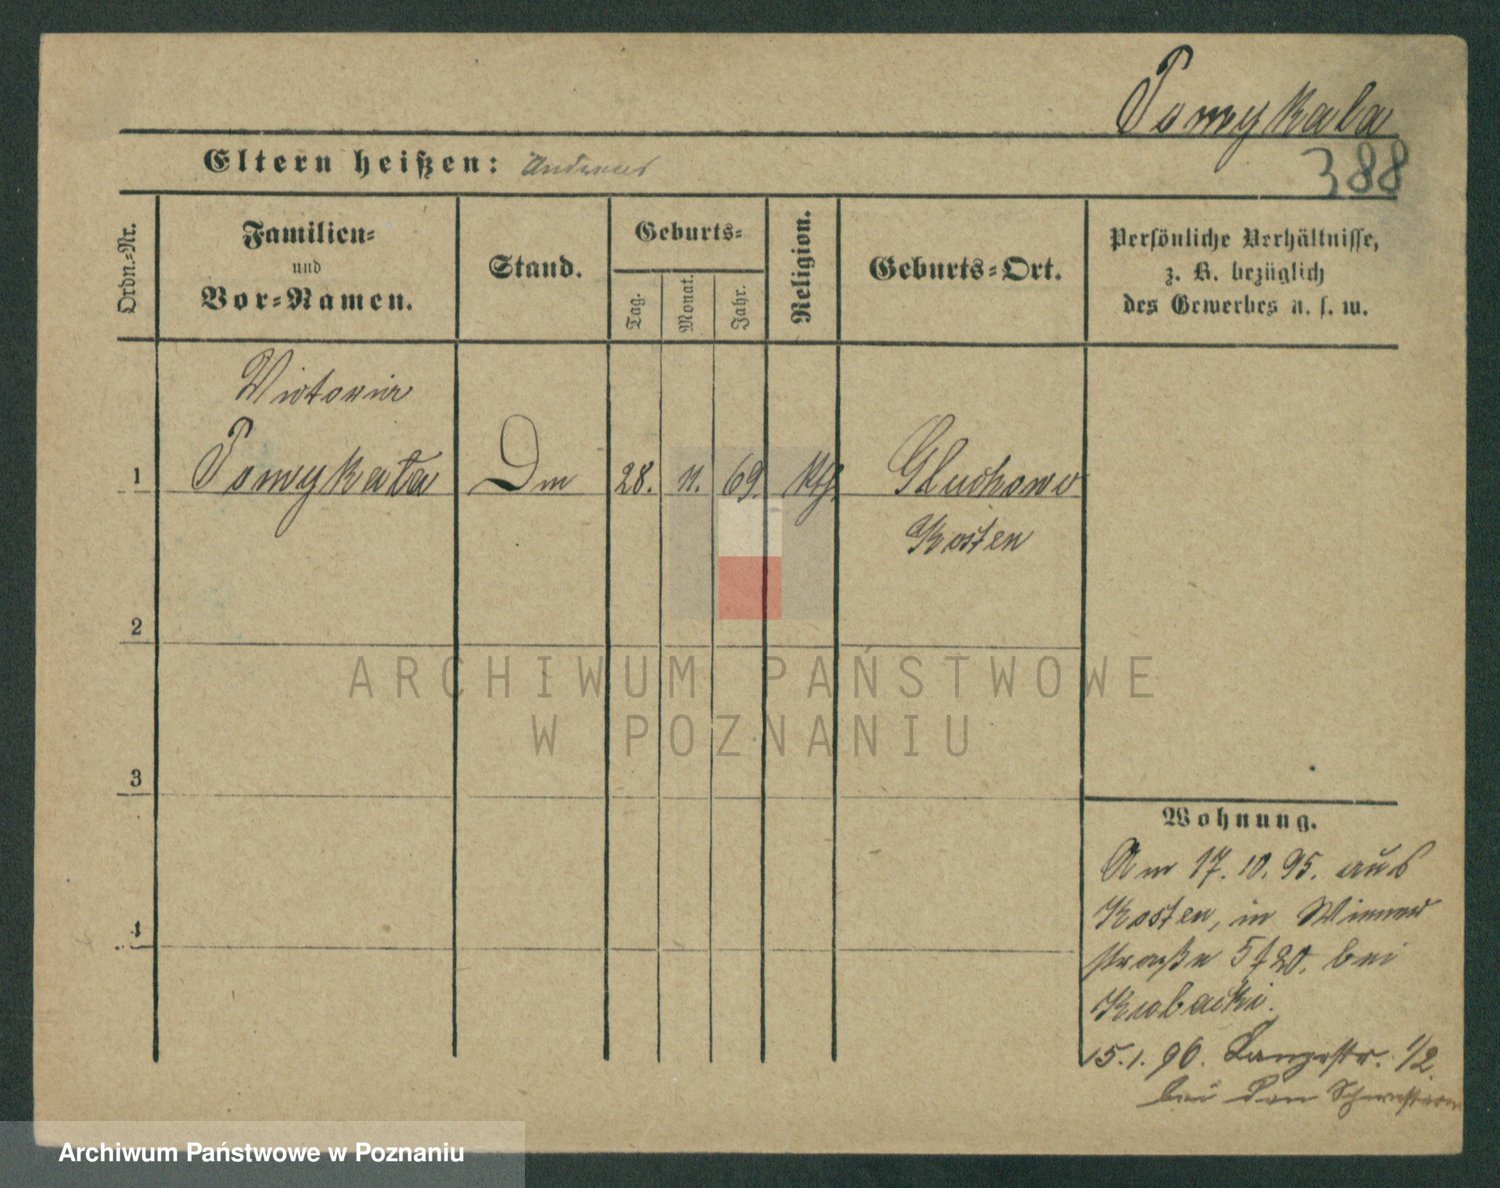 Pomykala
388
Eltern heißen: Andreas
Ordn.-Nr.
Familien-
und
Vor-Namen.
Stand.
Geburts-
Tag.
Monat.
Jahr.
Religion.
Geburts-Ort.
Persönliche Verhältnisse,
z. B. bezüglich
des Gewerbes u. s. w.
Victoria
1 Pomykała Dm 28. 11. 69. kth. Gluchowo
Kosten
2
3
4
Wohnung.
Am 17. 10. 95. aus
Kosten, in Wiener
straße 5 f 20. bei
Kubacki.
15. 1. 96. Langestr. 1/2
bei den Schwestern
ARCHIWUM PAŃSTWOWE
W POZNANIU
Archiwum Państwowe w Poznaniu